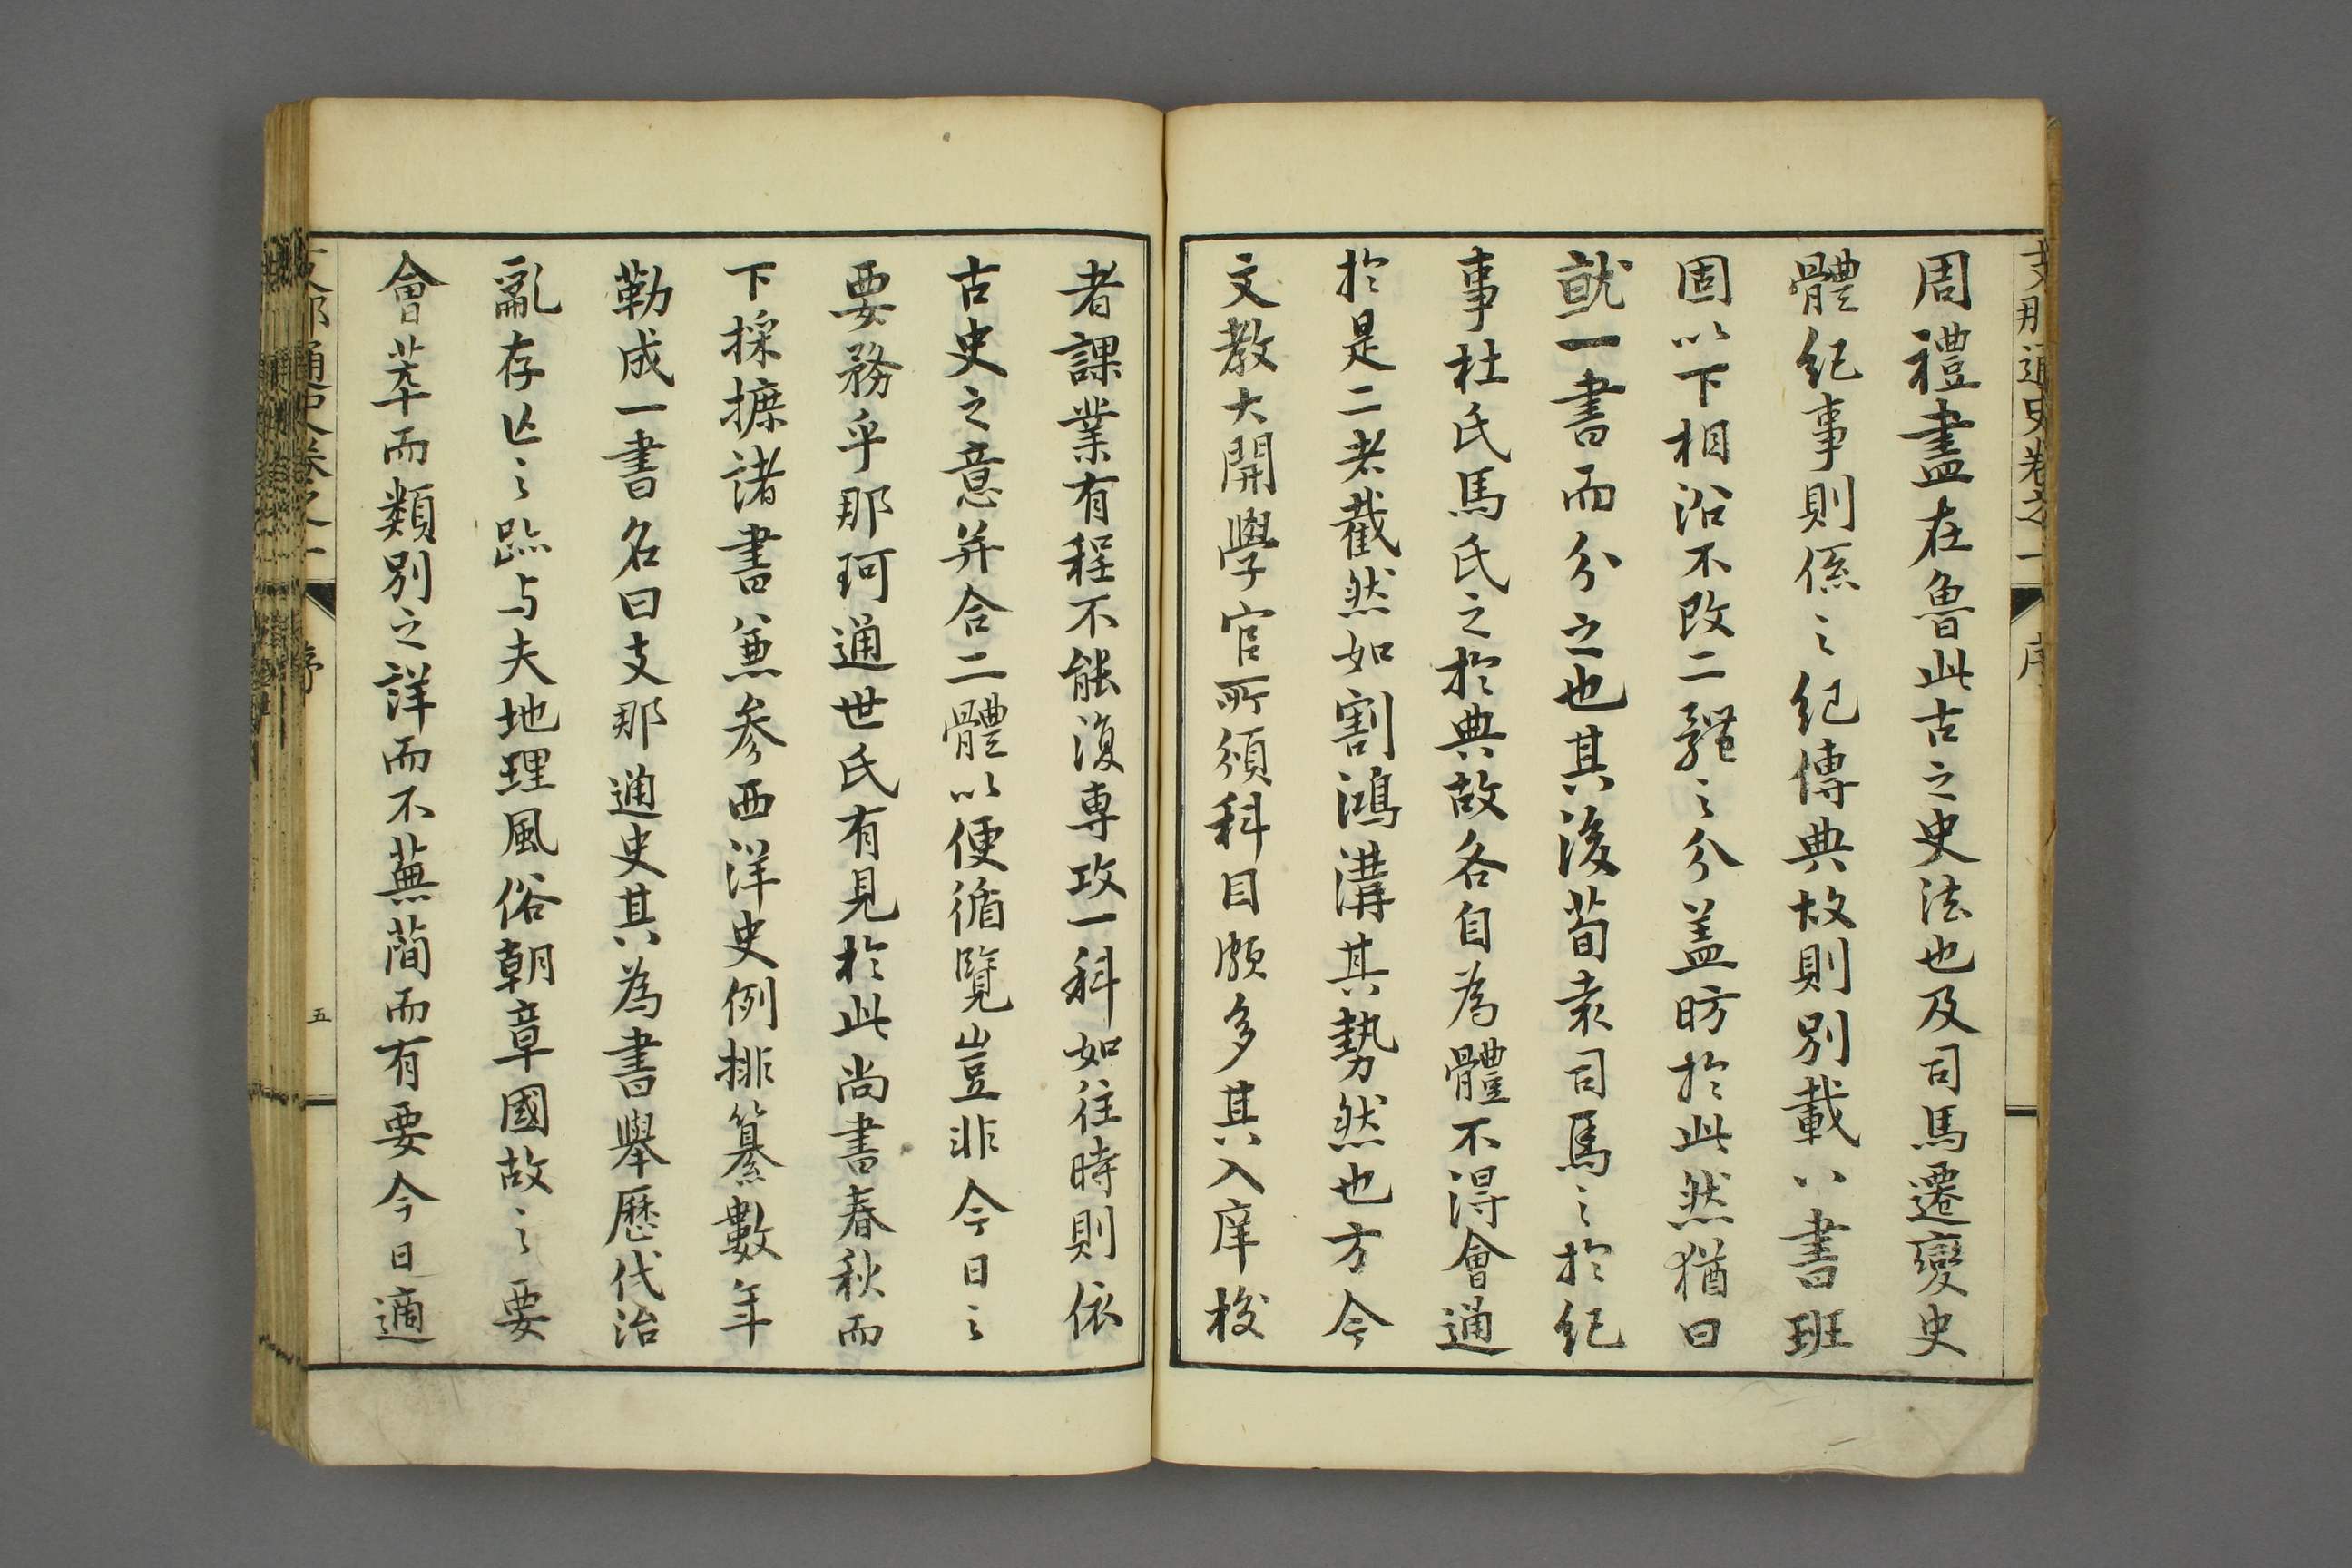 支那通史卷之一
序
周禮盡在魯此古之史法也及司馬遷變史
體紀事則係之紀傳典故則別載八書班
固以下相沿不改二體之分蓋昉於此然猶曰
就一書而分之也其後荀袁司馬之於紀
事杜氏馬氏之於典故各自為體不得會通
於是二者截然如割鴻溝其勢然也方今
文教大開學官所頒科目頗多其入庠校
者課業有程不能復專攻一科如往時則依
古史之意并合二體以便循覽豈非今日之
要務乎那珂通世氏有見於此尚書春秋而
下採摭諸書兼參西洋史例排纂數年
勒成一書名曰支那通史其為書舉歷代治
亂存亡之跡与夫地理風俗朝章國故之要
會萃而類別之詳而不蕪簡而有要今日適
支那通史卷之一
序
五